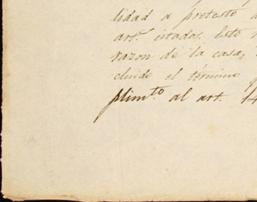 lidad a protestó a
art.s citados. Esto
razon de la casa,
cluido el término
plimto al art. 14